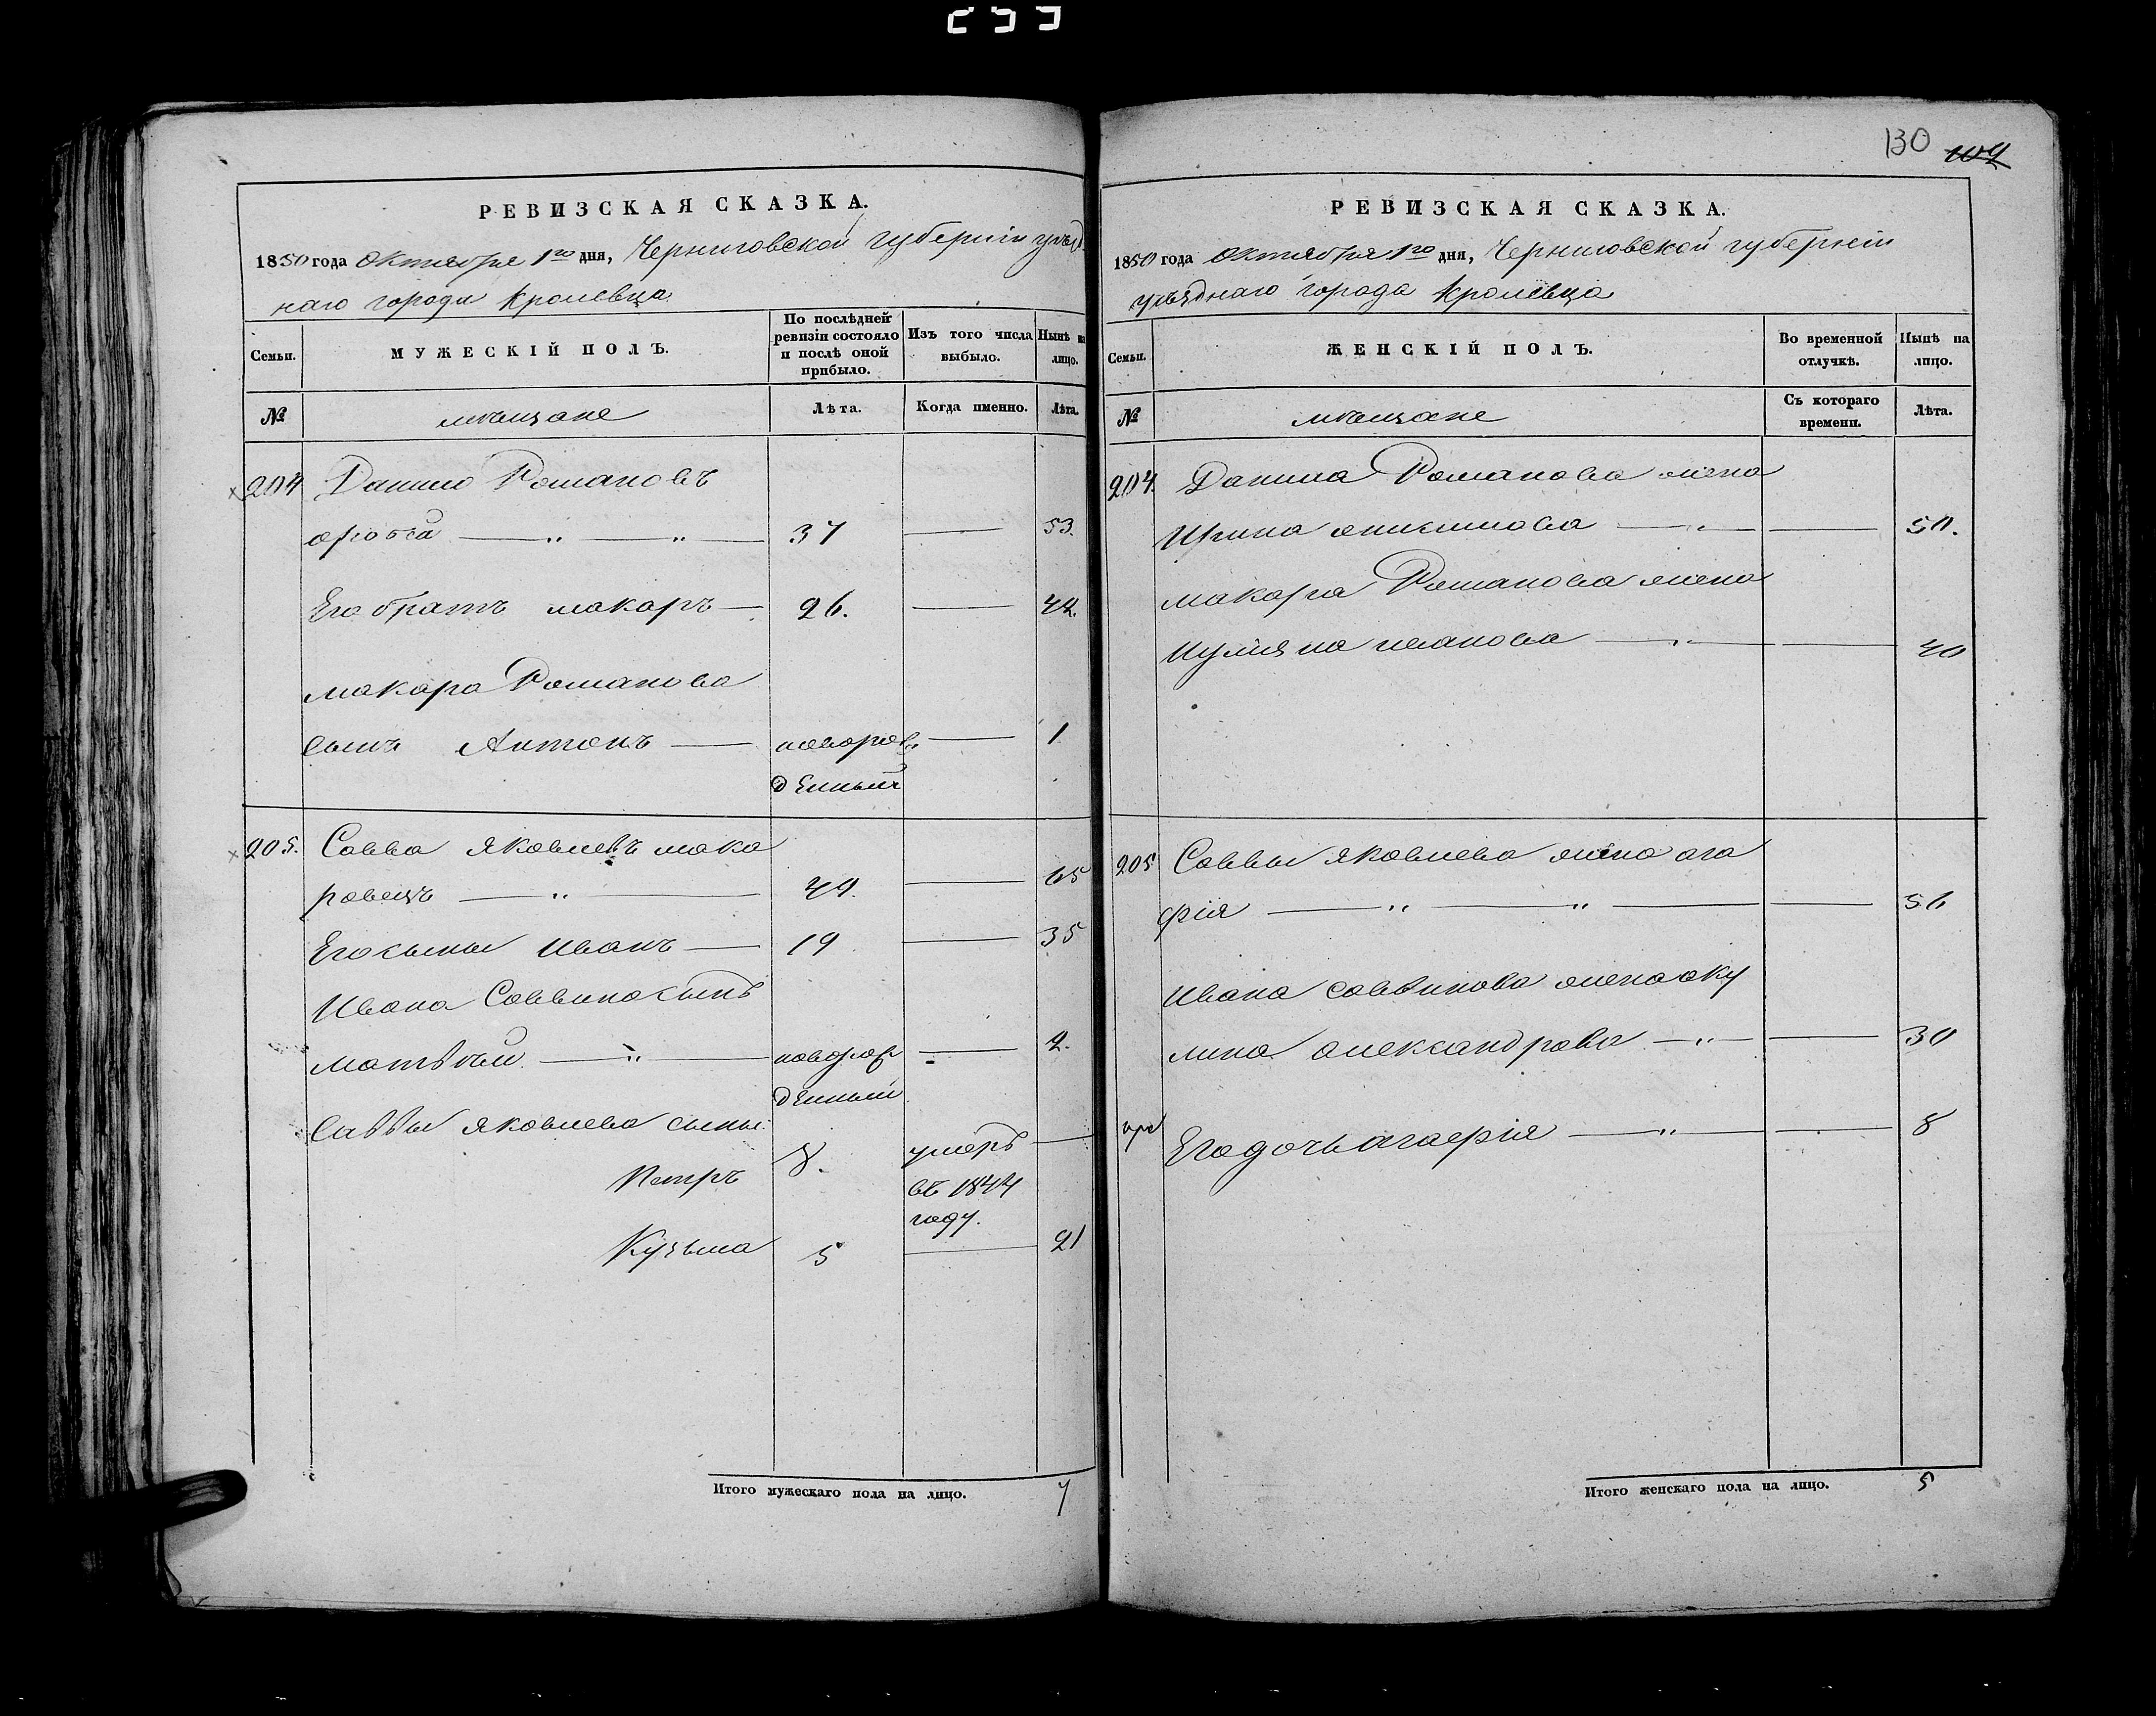 130 109
РЕВИЗСКАЯ СКАЗКА.
1850 года Октября 1го дня, Черниговской губерніи уѣзд
наго города Кролевца
Семьи.
МУЖЕСКІЙ ПОЛЪ.
По послѣдней ревизіи состояло и послѣ оной прибыло.
Изъ того числа выбыло.
Нынѣ на лицо.
№
мѣщане
Лѣта.
Когда именно.
Лѣта.
204 Данило Романовъ
37 — 53.
Его братъ макаръ — 26. — 42.
макара Романова
сынъ Антонъ — новорож — 1
денный
205. Савва Яковлевъ мака
ровецъ — " — 49. — 65
Его сыны Иванъ — 19 — 35
Ивана Саввина сынъ
матвѣй — " — новорож — 2.
денный
Саввы Яковлева сыны
Петръ 8. умеръ —
въ 1844
году.
Кузьма 5 — 21
Итого мужескаго пола на лицо. 7
РЕВИЗСКАЯ СКАЗКА.
1850 года Октября 1го дня, Черниговской губерніи
уѣзднаго города Кролевца
Семьи.
ЖЕНСКІЙ ПОЛЪ.
Во временной отлучкѣ.
Нынѣ на лицо.
№
мѣщане
Съ котораго времени.
Лѣта.
204. Данила Романова жена
Ирина — " — — 50.
макара Романова жена
Иулияна иванова — " — — 40
205 Саввы Яковлева жена ага
фія — " — " — — 56
Ивана саввинова жена аку
лина александрова — " — — 30
Его дочь агафія — " — — 8
Итого женскаго пола на лицо. 5